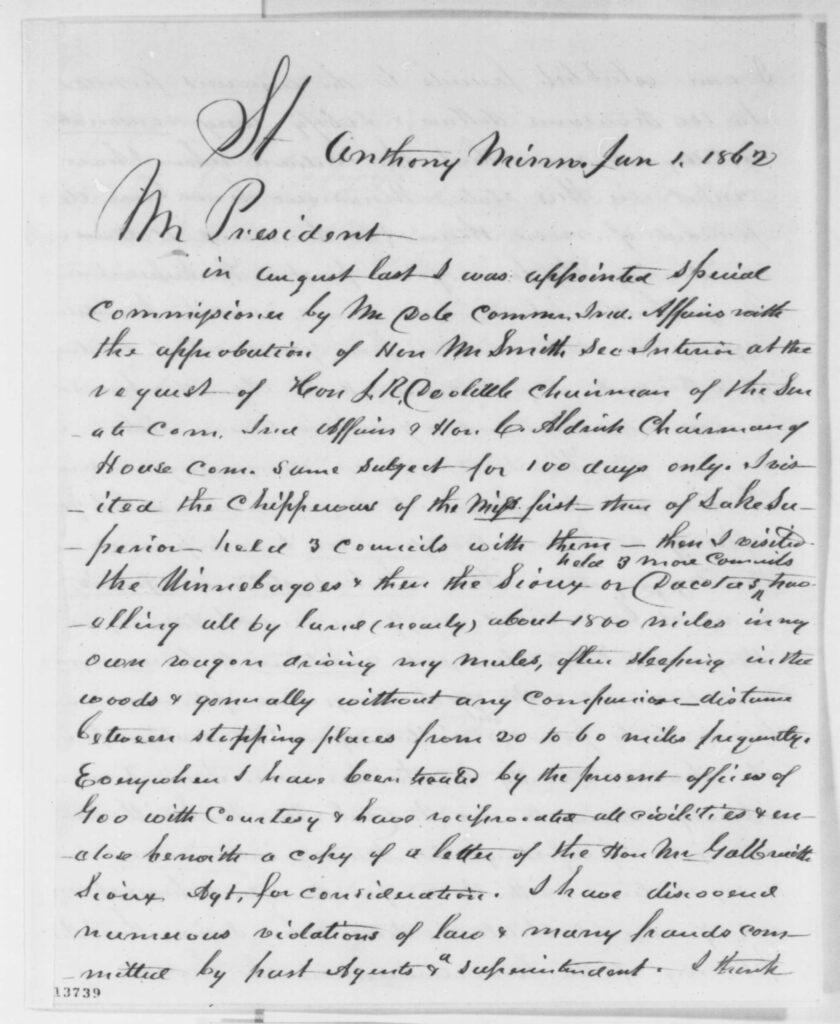 St Anthony Minn. Jan 1. 1862
Mr President
in August last I was appointed special
Commissioner by Mr Dole Commr. Ind. Affairs with
the approbation of Hon Mr Smith Sec Interior at the
request of Hon J. R. Doolittle Chairman of the Sen
ate Com. Ind Affairs & Hon. C. Aldrich Chairman of
House Com. same subject for 100 days only. I vis
-ited the Chippewas of the Mipi. first - then of Lake Su-
-perior - held 3 councils with them - then I visited
held 3 more Councils
the Winnebagoes & then the Sioux or Dacotas, trav
-elling all by land (nearly) about 1800 miles in my
own wagon driving my mules, often sleeping in the
woods & generally without any companion - distance
between stopping places from 20 to 60 miles frequently.
Everywhere I have been treated by the present officers of
Gov with Courtesy & have reciprocated all civilities & en-
-close herewith a copy of a letter of the Hon Mr Galbraith
Sioux Agt, for consideration. I have discovered
numerous violations of law & many frauds com-
-mitted by past Agents & a superintendent. I think
13739